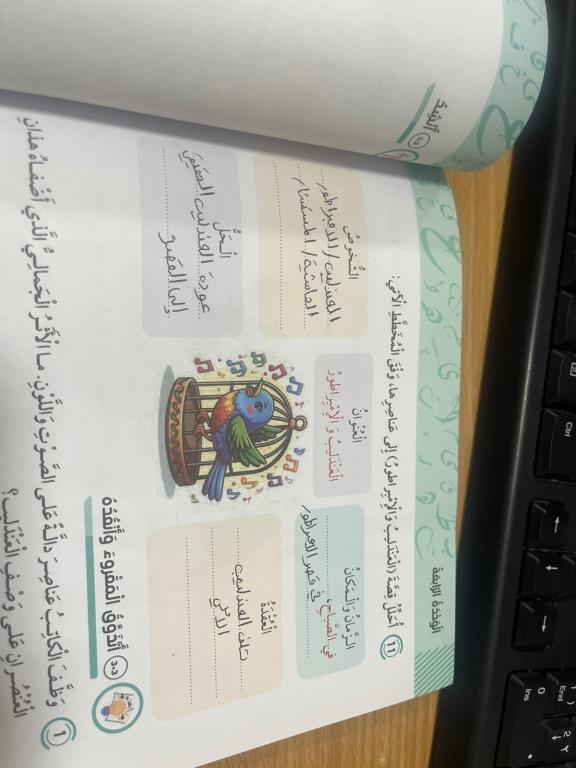 الْوَحْدَةُ الرَّابِعَةُ
11 أُحَلِّلُ قِصَّةَ (الْعَنْدَلِيبُ وَالْإِمْبِرَاطُورُ) إِلَى عَنَاصِرِهَا، وَفْقَ الْمُخَطَّطِ الْآتِي:
الزَّمَانُ وَالْمَكَانُ
في الصَّبَاحِ،
في قصر الامبراطور
الْعُنْوَانُ
الْعَنْدَلِيبُ وَالْإِمْبِرَاطُورُ
الشُّخُوصُ
العندليب / الامبراطور
الحاشية /
الْعُقْدَةُ
تلف العندليب
الآلي
الْحَلُّ
عودة العندليب الحقيقي
إلى القصر
3.3 أَتَذَوَّقُ الْمَقْرُوءَ وَأَنْقُدُهُ
1 وَظَّفَ الْكَاتِبُ عَنَاصِرَ دَالَّةً عَلَى الصَّوْتِ وَاللَّوْنِ. مَا الْأَثَرُ الْجَمَالِيُّ الَّذِي أَضْفَاهُ هَذَانِ
الْعُنْصُرَانِ عَلَى وَصْفِ الْعَنْدَلِيبِ؟
Ctrl
End
1
Ins
0